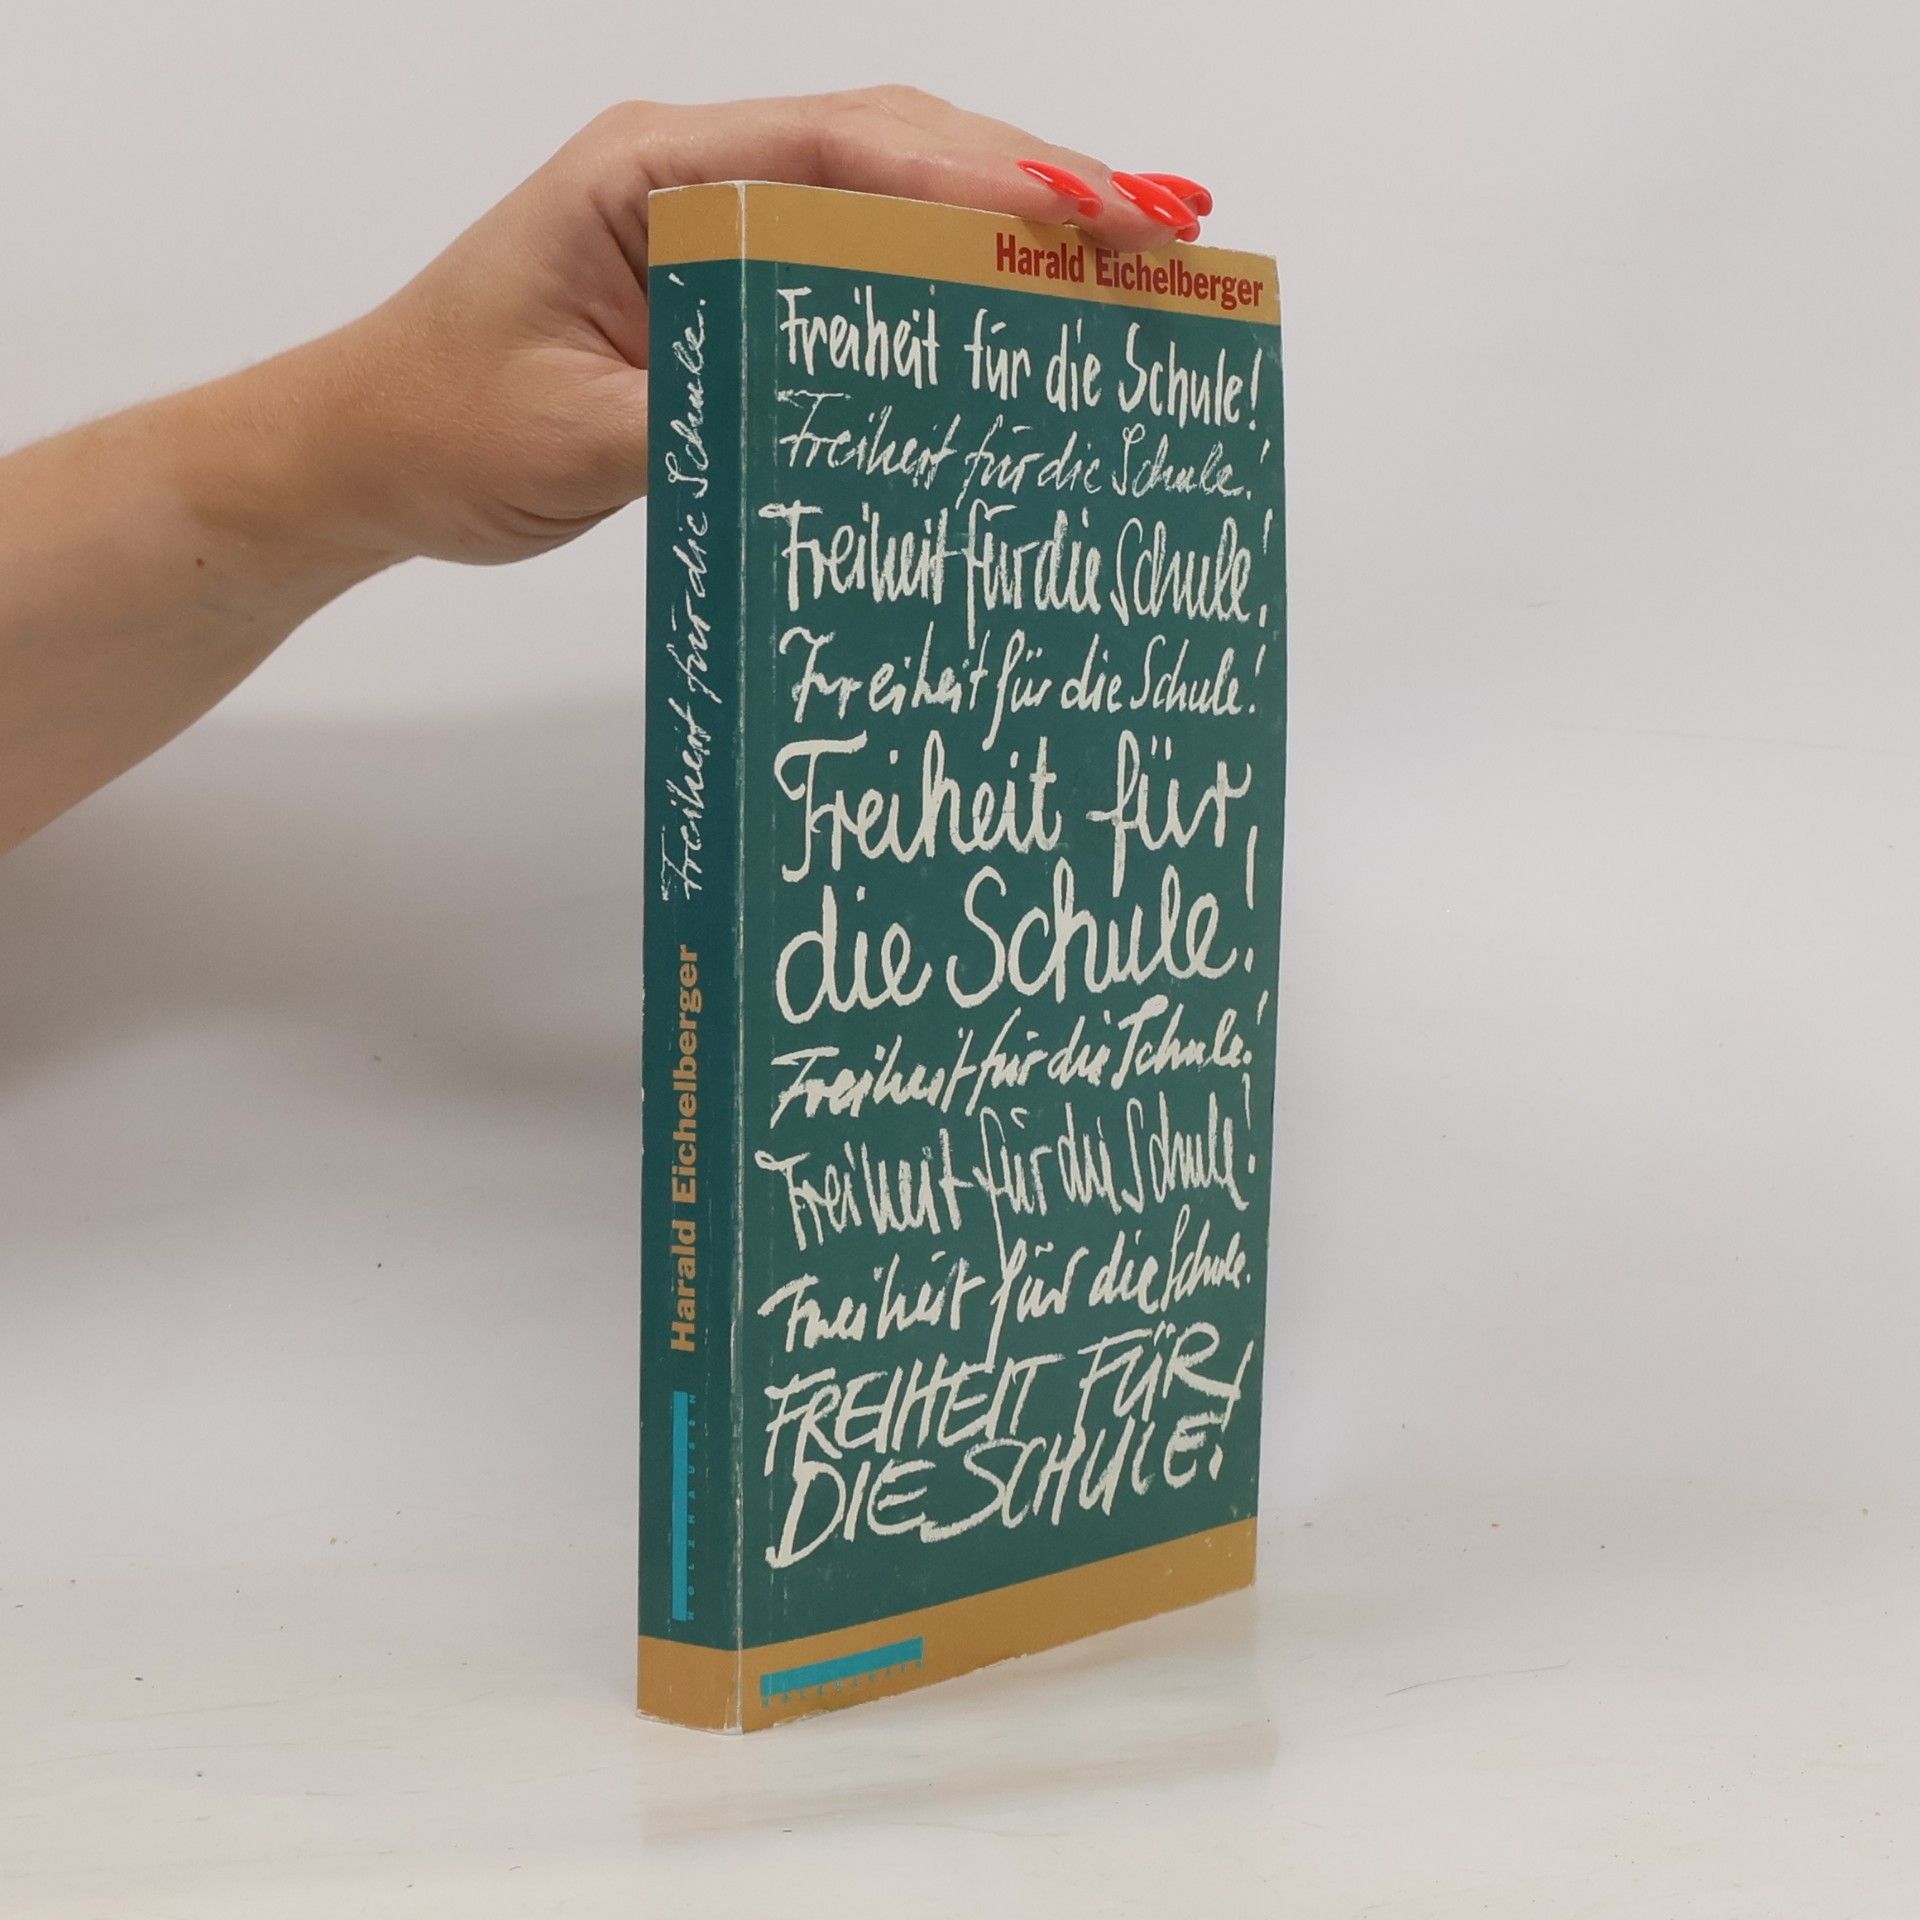 Harald Eichelberger
Freiheit für die Schule!
Freiheit für die Schule!
Freiheit für die Schule!
Freiheit für die Schule!
Freiheit für
die Schule!
Freiheit für die Schule!
Freiheit für die Schule!
Freiheit für die Schule.
FREIHEIT FÜR
DIE SCHULE!
HOLZHAUSEN
Freiheit für die Schule!
Harald Eichelberger
HOLZHAUSEN